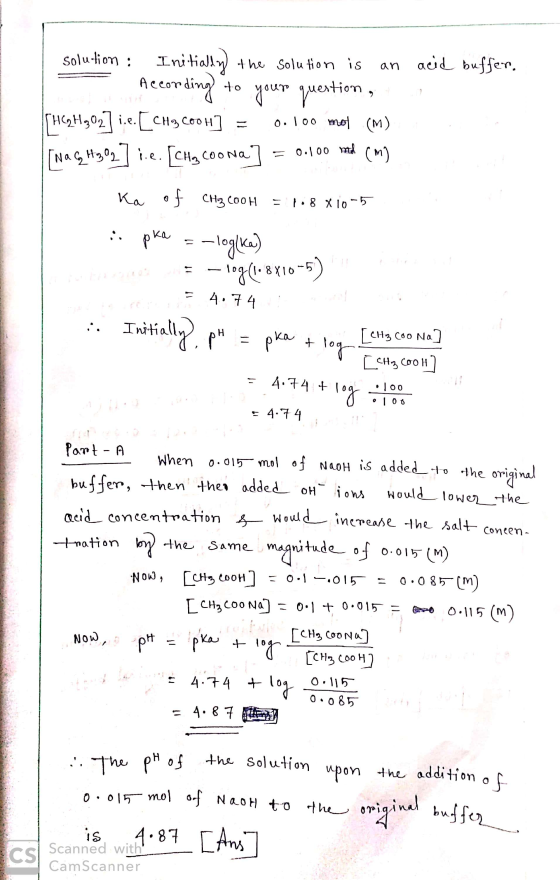 Solution : Initially the solution is an acid buffer.
According to your question,
[HC2H3O2] i.e. [CH3COOH] = 0.100 mol (M)
[NaC2H3O2] i.e. [CH3COONa] = 0.100 mol (M)
Ka of CH3COOH = 1.8 X 10-5
∴ pKa = -log(Ka)
= - log(1.8X10-5)
= 4.74
∴ Initially, pH = pKa + log [CH3COONa] / [CH3COOH]
= 4.74 + log .100 / .100
= 4.74
Part - A When 0.015 mol of NaOH is added to the original
buffer, then the added OH- ions would lower the
acid concentration & would increase the salt concen-
tration by the same magnitude of 0.015 (M)
Now, [CH3COOH] = 0.1 - .015 = 0.085 (M)
[CH3COONa] = 0.1 + 0.015 = 0.115 (M)
Now, pH = pKa + log [CH3COONa] / [CH3COOH]
= 4.74 + log 0.115 / 0.085
= 4.87
∴ The pH of the solution upon the addition of
0.015 mol of NaOH to the original buffer
is 4.87 [Ans]
CS Scanned with
CamScanner